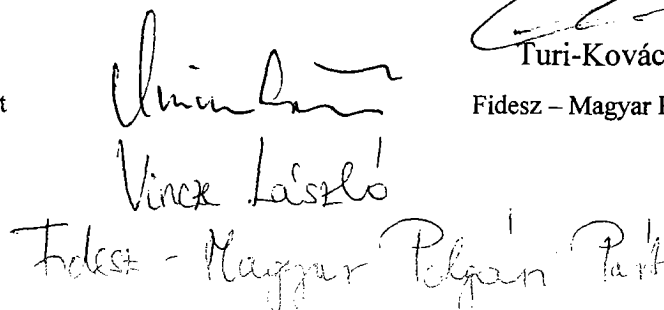 Turi-Kovác
t
Fidesz – Magyar P
Vincze László
Fidesz - Magyar Polgári Párt